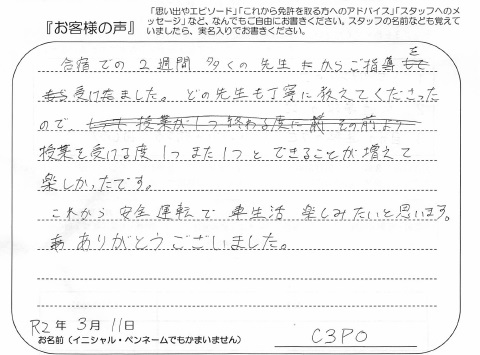 『お客様の声』
「思い出やエピソード」「これから免許を取る方へのアドバイス」「スタッフへのメッセージ」など、なんでもご自由にお書きください。スタッフの名前なども覚えていましたら、実名入りでお書きください。
合宿での2週間 多くの先生たからご指導を
受けました。どの先生も丁寧に教えてくださった
ので、授業が1つ終わる度に その前より
授業を受ける度1つまた1つとできることが増えて
楽しかったです。
これから安全運転で車生活楽しみたいと思います。
ありがとうございました。
R2年 3月 11日
お名前(イニシャル・ペンネームでもかまいません)
C3PO